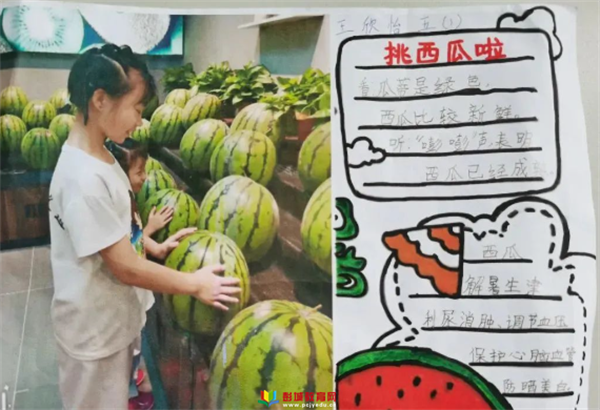 王欣怡 五(1)
挑西瓜啦
看瓜蒂是绿色,
西瓜比较新鲜。
听:"嘭嘭"声表明
西瓜已经成
西瓜
解暑生津
利尿消肿、调节血压
保护心脑血管
防晒美白
彭城教育网
pcjyedu.cn